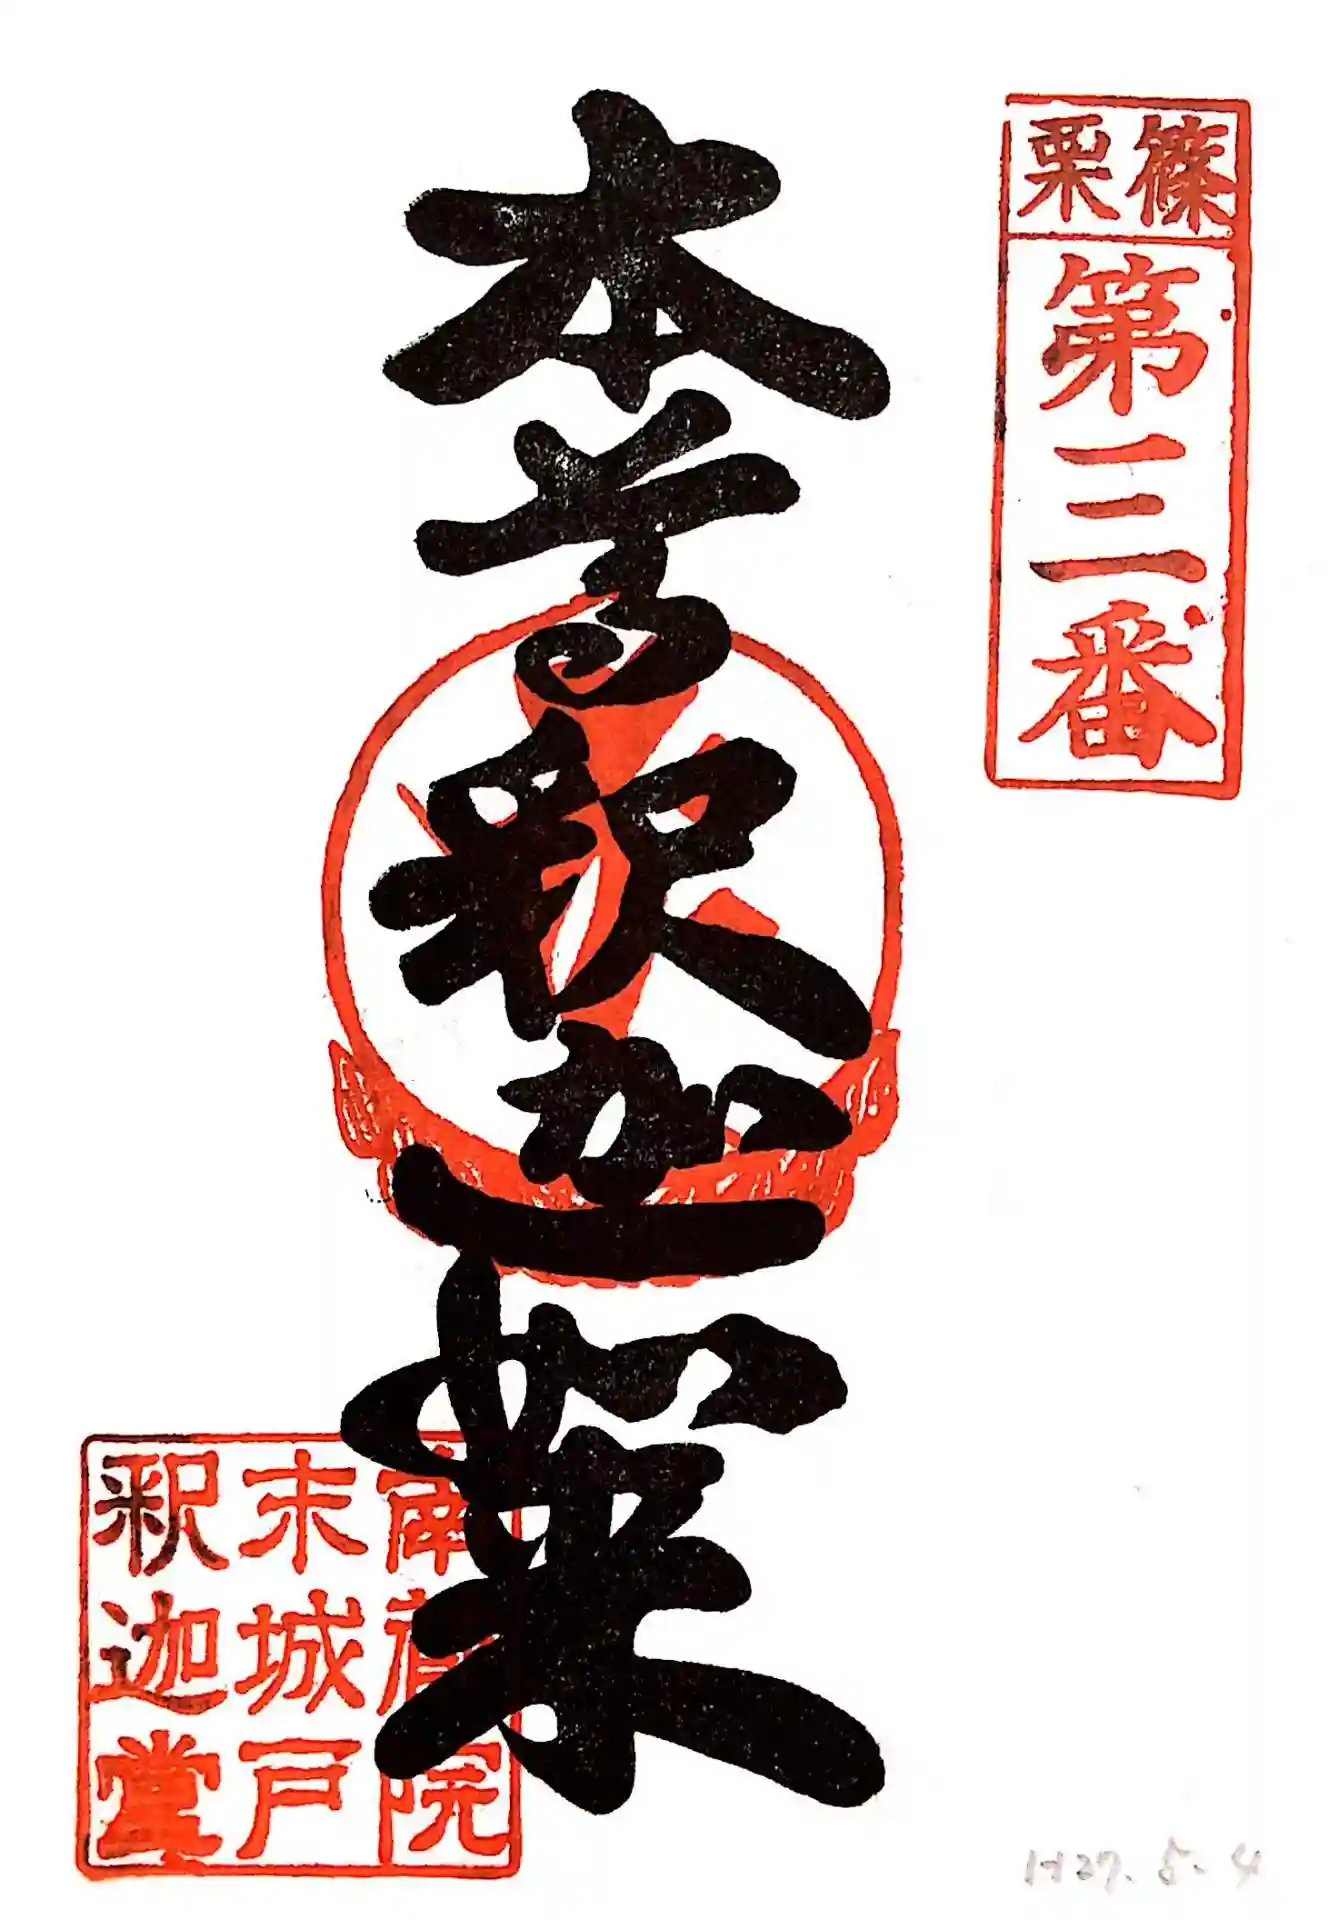 篠栗
第三番
本尊釈迦如来
南蔵院
末城戸
釈迦堂
H27.5.4